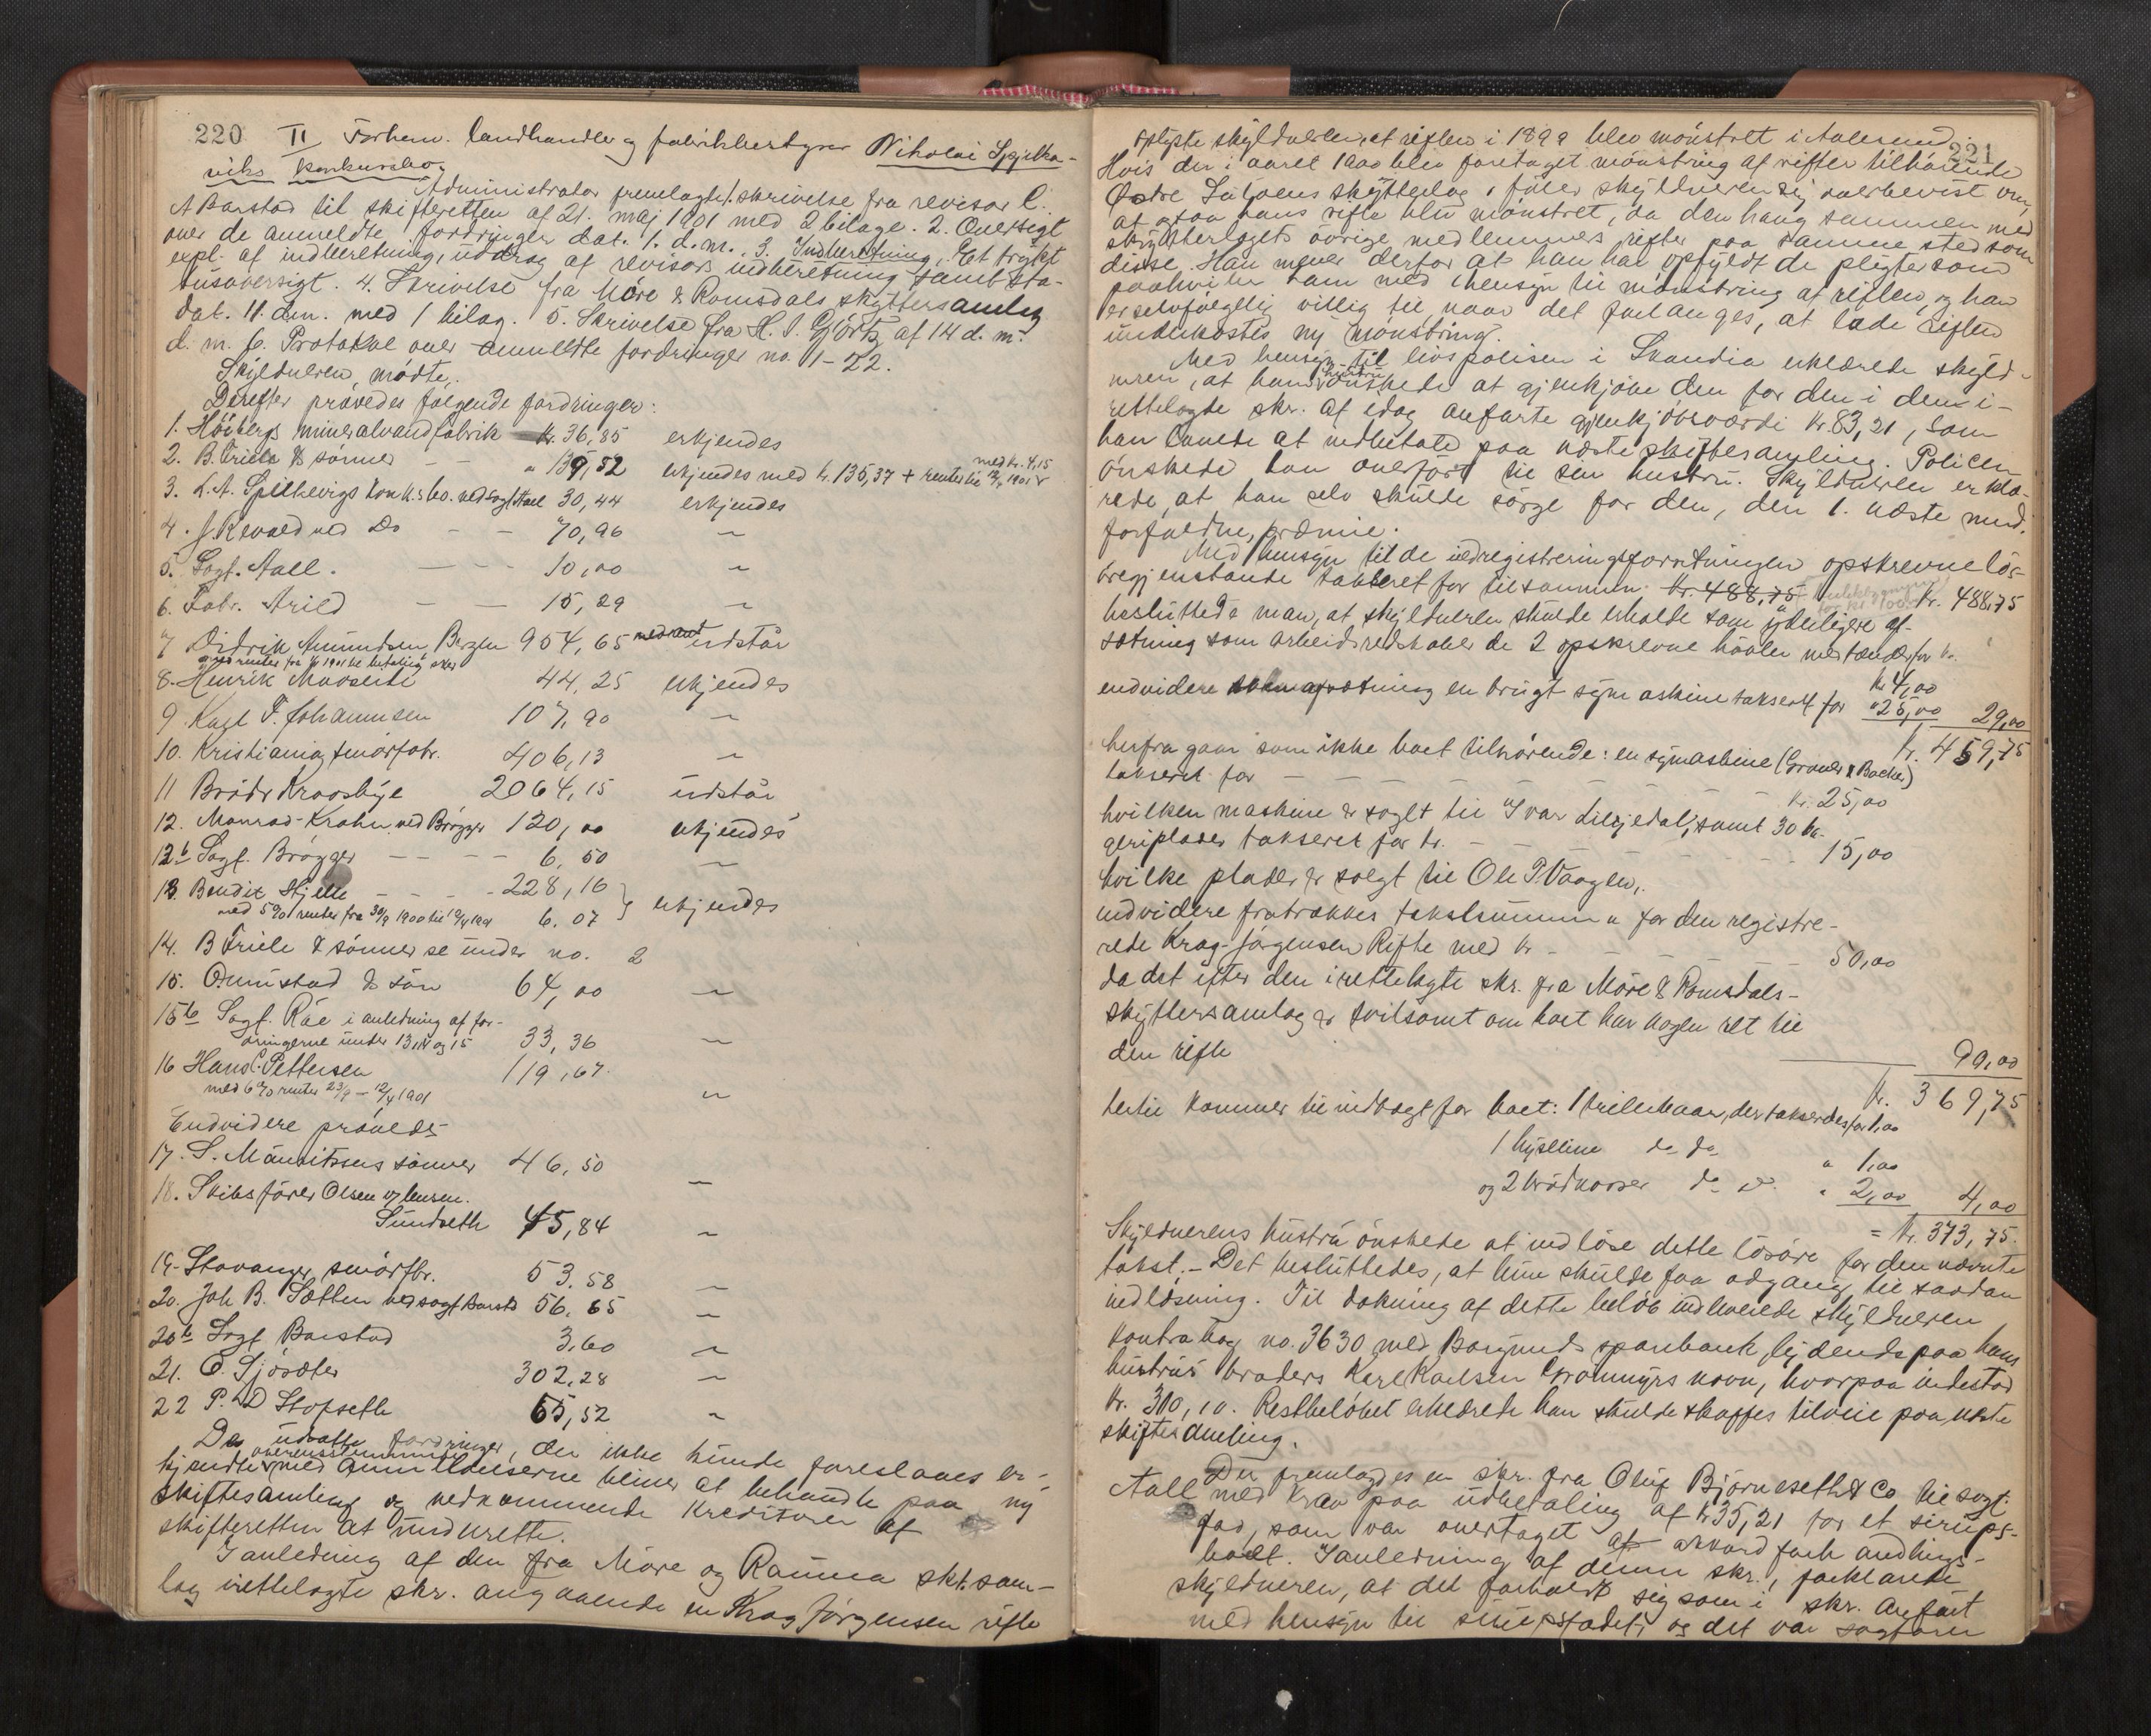 220 II Forhen. landhandler og fabrikbestyrer Nikolai Spjelka-
viks konkursbo.
Administrator fremlagde 1. skrivelse fra revisor C.
A Barstad til skifteretten af 21. maj 1901 med 2 bilage. 2. Oversigt
over de anmeldte fordringer dat. 1. d.m. 3. Indberetning. Et trykt
expl. af indberetning, uddrag af revisors indberetning samt sta-
tusoversigt. 4. Skrivelse fra Möre & Romsdals skyttersamlag
dat. 11. dm. med 1 bilag. 5. Skrivelse fra H. S. Gjörtz af 14 d. m.
d. m. 6. Protokol over anmeldte fordringer no. 1-22.
Skyldneren mödte.
Derefter prövedes fölgende fordringer:
1. Höibergs mineralvandfabrik kr. 36,85 erkjendes
2. B. Friele & sönner - - " 139,52 erkjendes med kr. 135,37 + renter til 12/4 1901 med kr. 4,15
3. L. A. Spilhevigs konk.bo. ved sagf. Aall 30,44 erkjendes
4. J. Kevold ved Do - - 70,96 〃
5. Sagf. Aall. - - - 10,00 〃
6. Fabr. Arild - - 15,29 〃
7 Didrik Amundsen, Bergen 954,65 udstår
med renter fra 1/4 1901 til betaling sker
8. Henrik Mowseth 44,25 erkjendes
9 Karl F. Johannesen 107,90 〃
10. Kristiania smörfabr. 406,13 〃
11 Brödr. Kroosbye 2064,15 udstår
12. Monrad-Krohn, ved Brögger 120,00 erkjendes
12b Sagf. Brögger - - - - 6,50 〃
13. Bendix Hjelle - - - - 228,16 } erkjendes
med 5% renter fra 30/9 1900 til 12/4 1901 6.07
14. B Friele & sönner se under no. 2
15. Ormestad & sön 64,00 〃
15b Sagf. Råe i anledning af for-
dringerne under 13, 14 og 15 33,36 〃
16 Hans C. Pettersen 119,67.
med 6% renter 23/9 - 12/4 1901 〃
Endvidere prövedes
17. S. Mauritzsens sönner 46,50 〃
18. Skibsförer Olsen og
Sundseth 45,84 〃
19. Stavanger smörfbr. 53.58 〃
20. Joh B. Sætten ved sagf. Barstad 56.65 〃
20b Sagf Barstad 3,60 〃
21. O. Sjösæter 302,28 〃
22 P. D Stofseth 65,52 〃
De udsatte fordringer, der ikke kunde foreslaaes er-
kjendte overensstemmende med anmeldelserne bliver at behandle paa ny
skiftesamling og vedkommende kreditorer af
skifteretten at underrette.
I anledning af den fra Möre og Rauma skt. sam-
lag irettelagte skr. angaaende en Krag Jörgensen rifle
221
oplyste skyldneren, at riflen i 1899 blev mönstret i Aalesund.
Hvis der i aaret 1900 blev foretaget mönstring af rifler tilhörende
Østre Sulöens skytterlag, föler skyldneren sig overbevist om,
at ogsaa hans rifle blev mönstret, da den hang sammen med
skytterlagets övrige medlemmers rifler paa samme sted som
disse. Han mener derfor at han har opfyldt de pligter som
paahviler ham med hensyn til mönstring af riflen, og han
er selvfölgelig villig til naar det forlanges, at lade riflen
underkastes ny mönstring.
Med hensyn til livspolisen i Skandia erklærede skyld-
neren, at hans hustru önskede at gjenkjöbe den for den i den i-
rettelagte skr. af idag anförte gjenkjöbsværdi kr. 83,21, som
han lovede at indbetale paa næste skiftesamling. Policen
önskede han overfört til sin hustru. Skyldneren erklæ-
rede, at han selv skulde sörge for den, den 1. næste md.
forfaldne, præmie.
Med hensyn til de ved registreringsforretningen opskrevne lös-
öregjenstande taxeret for tilsammen kr. 488,75 kr. 488,75
besluttede man, at skyldneren skulde erholde som yderligere af-
sætning som arbeidsredskaber de 2 opskrevne hövler med tænder for kr.
kr. 4,00
endvidere som afsætning en brugt symaskine takseret for " 25,00 29,00
kr. 459,75
herfra gaar som ikke boet tilhörende: en symaskine (Groner & Backe)
takseret for - - - - kr. 25,00
hvilken maskine er solgt til Ivar Liljedal, samt 30 ba-
geriplader takseret for kr. - - - - 15,00
hvilke plader er solgt til Ole P. Vaagen,
endvidere fratrækkes takstsummen for den registre-
rede Krag-Jörgensen Rifle med kr - - - - 50,00
da det efter den irettelagte skr. fra Möre & Romsdals-
skyttersamlag er tvilsomt om boet har nogen ret til
den rifle 90,00
kr. 369,75
hertil kommer til indtægt for boet: 1 trillebaar, der takserdes for 1,00
1 hyseline do do " 1,00
og 2 brödkasser do do. " 2,00 4,00
= kr. 373,75.
Skyldnerens hustru önskede at indlöse dette lösöre for den nævnte
takst. - Det besluttedes, at hun skulde faa adgang til saadan
indlösning. Til dækning af dette belöb indleverede skyldneren
kontrabog no. 3630 med Borgunds sparebank, lydende paa hans
hustrus broders Karl Karlsen Gramnyrs navn, hvorpaa indestod
kr. 310,10. Restbelöbet erklærede han skulde skaffes tilveie paa næste
skiftesamling.
Der fremlagdes en skr. fra Oluf Björneseth & Co til sagf.
Aall med krav paa udbetaling af kr 35,21 for et sirups-
fad, som var overtaget af akkordforhandlings-
boet. I anledning af denne skr., forklarede
skyldneren, at det forholdt sig som i skr. anfört
med hensyn til sirupsfadet, og det var sagförer